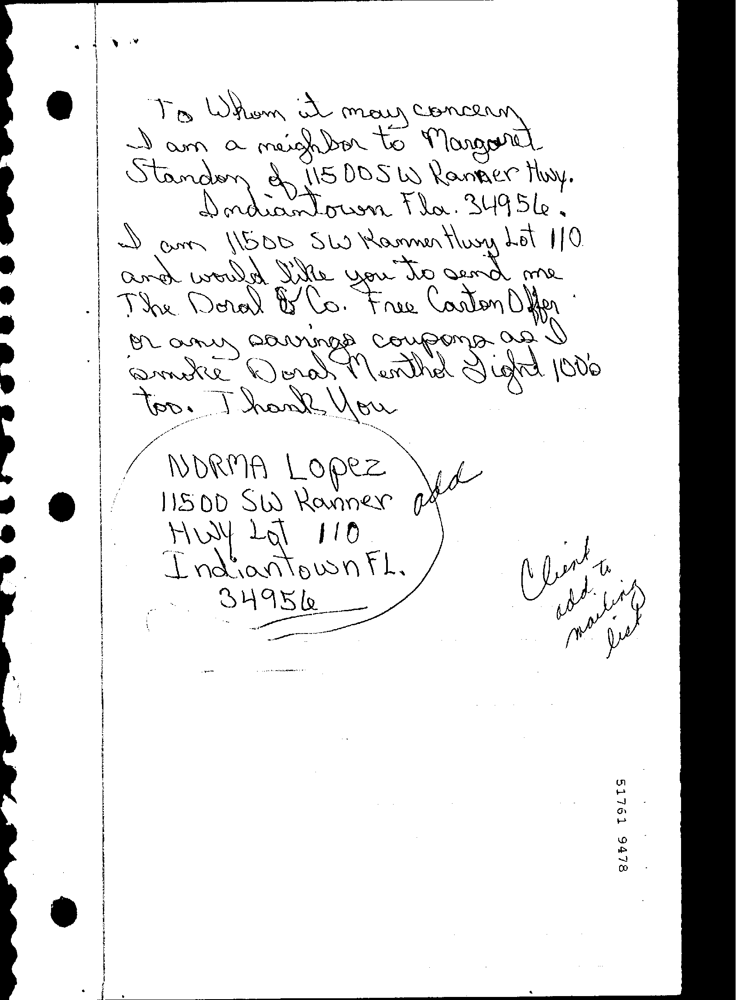 To Whom it may concern
I am a neighbor to Margaret
Standon of 11500 SW Kanner Hwy.
Indiantown Fla. 34956.
I am 11500 SW Kanner Hwy Lot 110
and would like you to send me
The Doral & Co. Free Carton Offer
or any savings coupons as I
smoke Doral Menthol Light 100's
too. Thank You
NORMA Lopez
11500 SW Kanner
HWY Lot 110
Indiantown FL.
34956
add
Client
add to
mailing
list
51761 9478